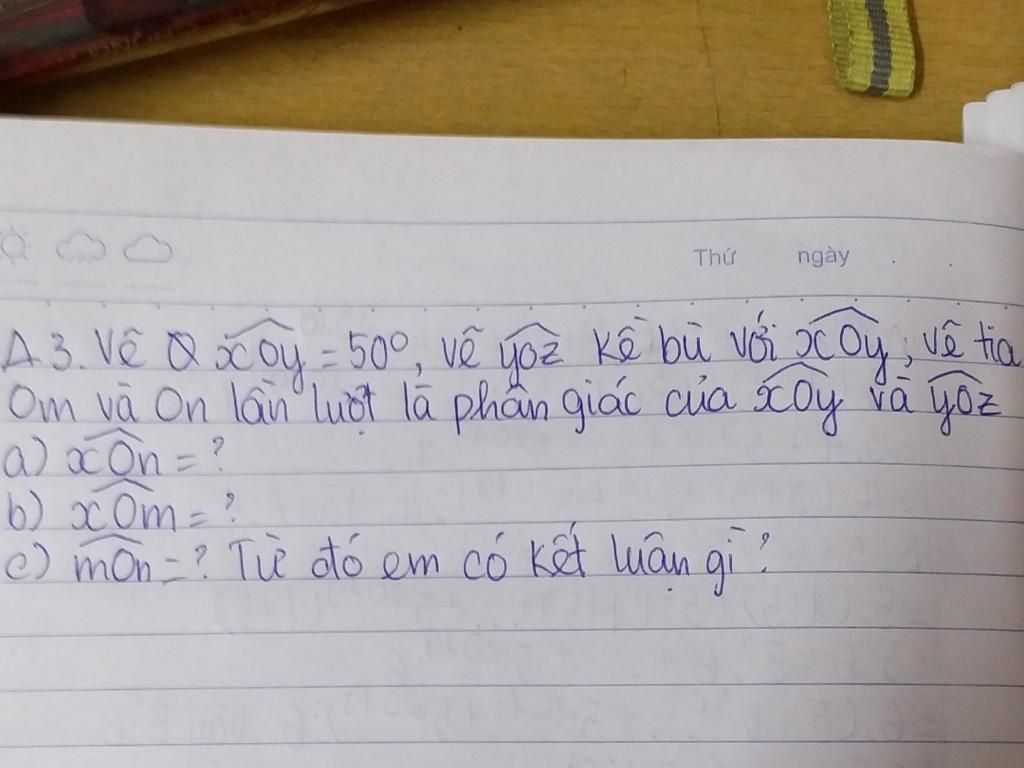 Thứ ngày
A.3. Vẽ xOy = 50°, vẽ yOz kề bù với xOy, vẽ tia
Om và On lần lượt là phân giác của xOy và yOz
a) xOn = ?
b) xOm = ?
c) mOn = ? Từ đó em có kết luận gì?